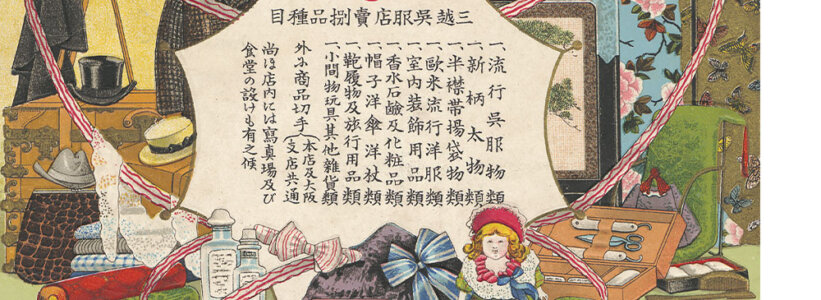 三越吳服店賣捌品種目
一、流行吳服物類
一、新柄太物類
一、半襟帶揚袋物類
一、歐米流行洋服類
一、室内装飾用品類
一、香水石鹼及化粧品類
一、帽子洋傘洋杖類
一、鞄履物及旅行用品類
一、小間物玩具其他雜貨類
外ニ商品切手(本店及大阪支店共通)
尚ほ店内には寫眞場及び
食堂の設けも有之候